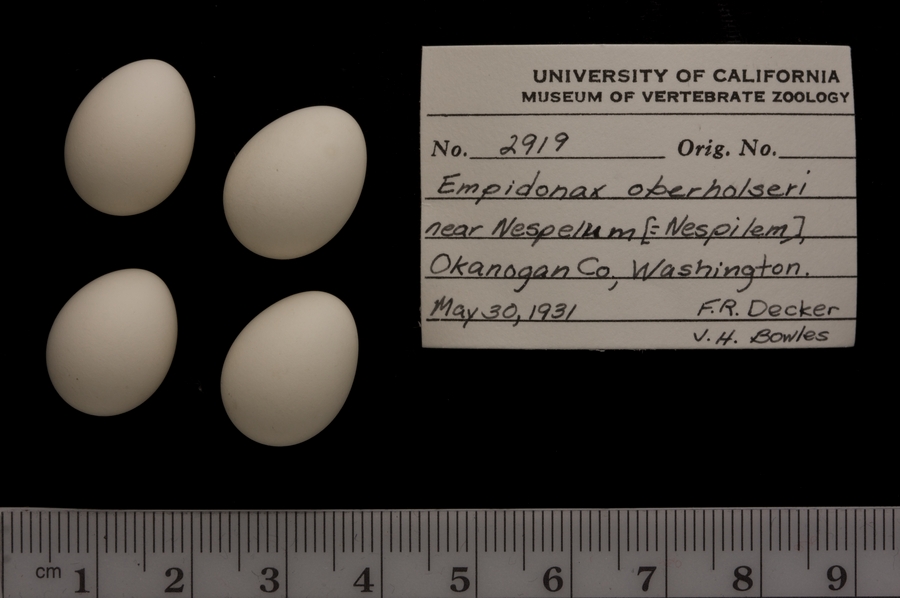 UNIVERSITY OF CALIFORNIA
MUSEUM OF VERTEBRATE ZOOLOGY
No. 2919 Orig. No.
Empidonax oberholseri
near Nespelum [=Nespilem],
Okanogan Co, Washington.
May 30, 1931 F.R. Decker
J.H. Bowles
cm 1 2 3 4 5 6 7 8 9